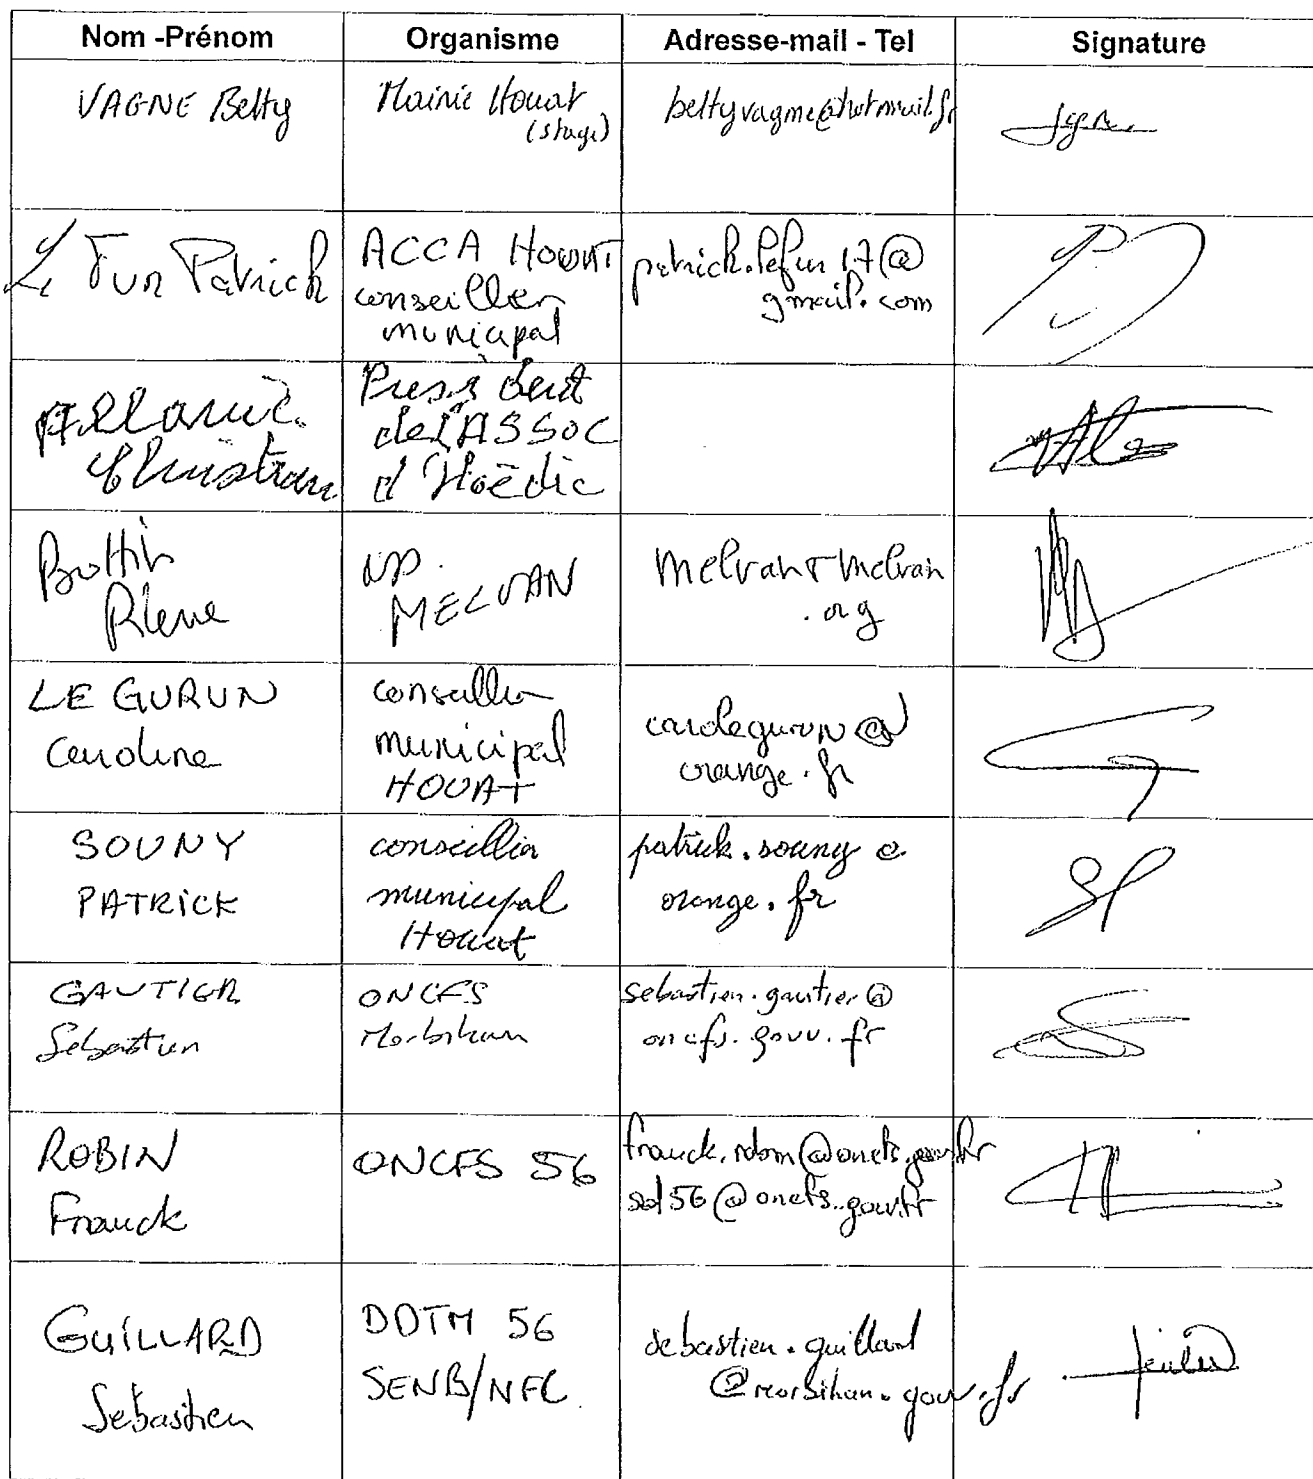 Nom -Prénom Organisme Adresse-mail - Tel Signature
VAGNE Betty
Mairie Houat
(stage)
bettyvagne@hotmail.fr
Le Fur Patrick
ACCA Houat
conseiller
municipal
patrick.lefur17@
gmail.com
Allanic
Christian
Président
de l'ASSOC
d'Hoëdic
Bottin
Pierre
MELVAN
melvan
.org
LE GURUN
Caroline
conseiller
municipal
HOUAT
carolegurun@
orange.fr
SOUNY
PATRICK
conseiller
municipal
Houat
patrick.souny@
orange.fr
GAUTIER
Sébastien
ONCFS
Morbihan
sebastien.gautier@
oncfs.gouv.fr
ROBIN
Franck
ONCFS 56
franck.robin@oncfs.gouv.fr
sd56@oncfs.gouv.fr
GUILLARD
Sébastien
DDTM 56
SENB/NFC
sebastien.guillard
@morbihan.gouv.fr